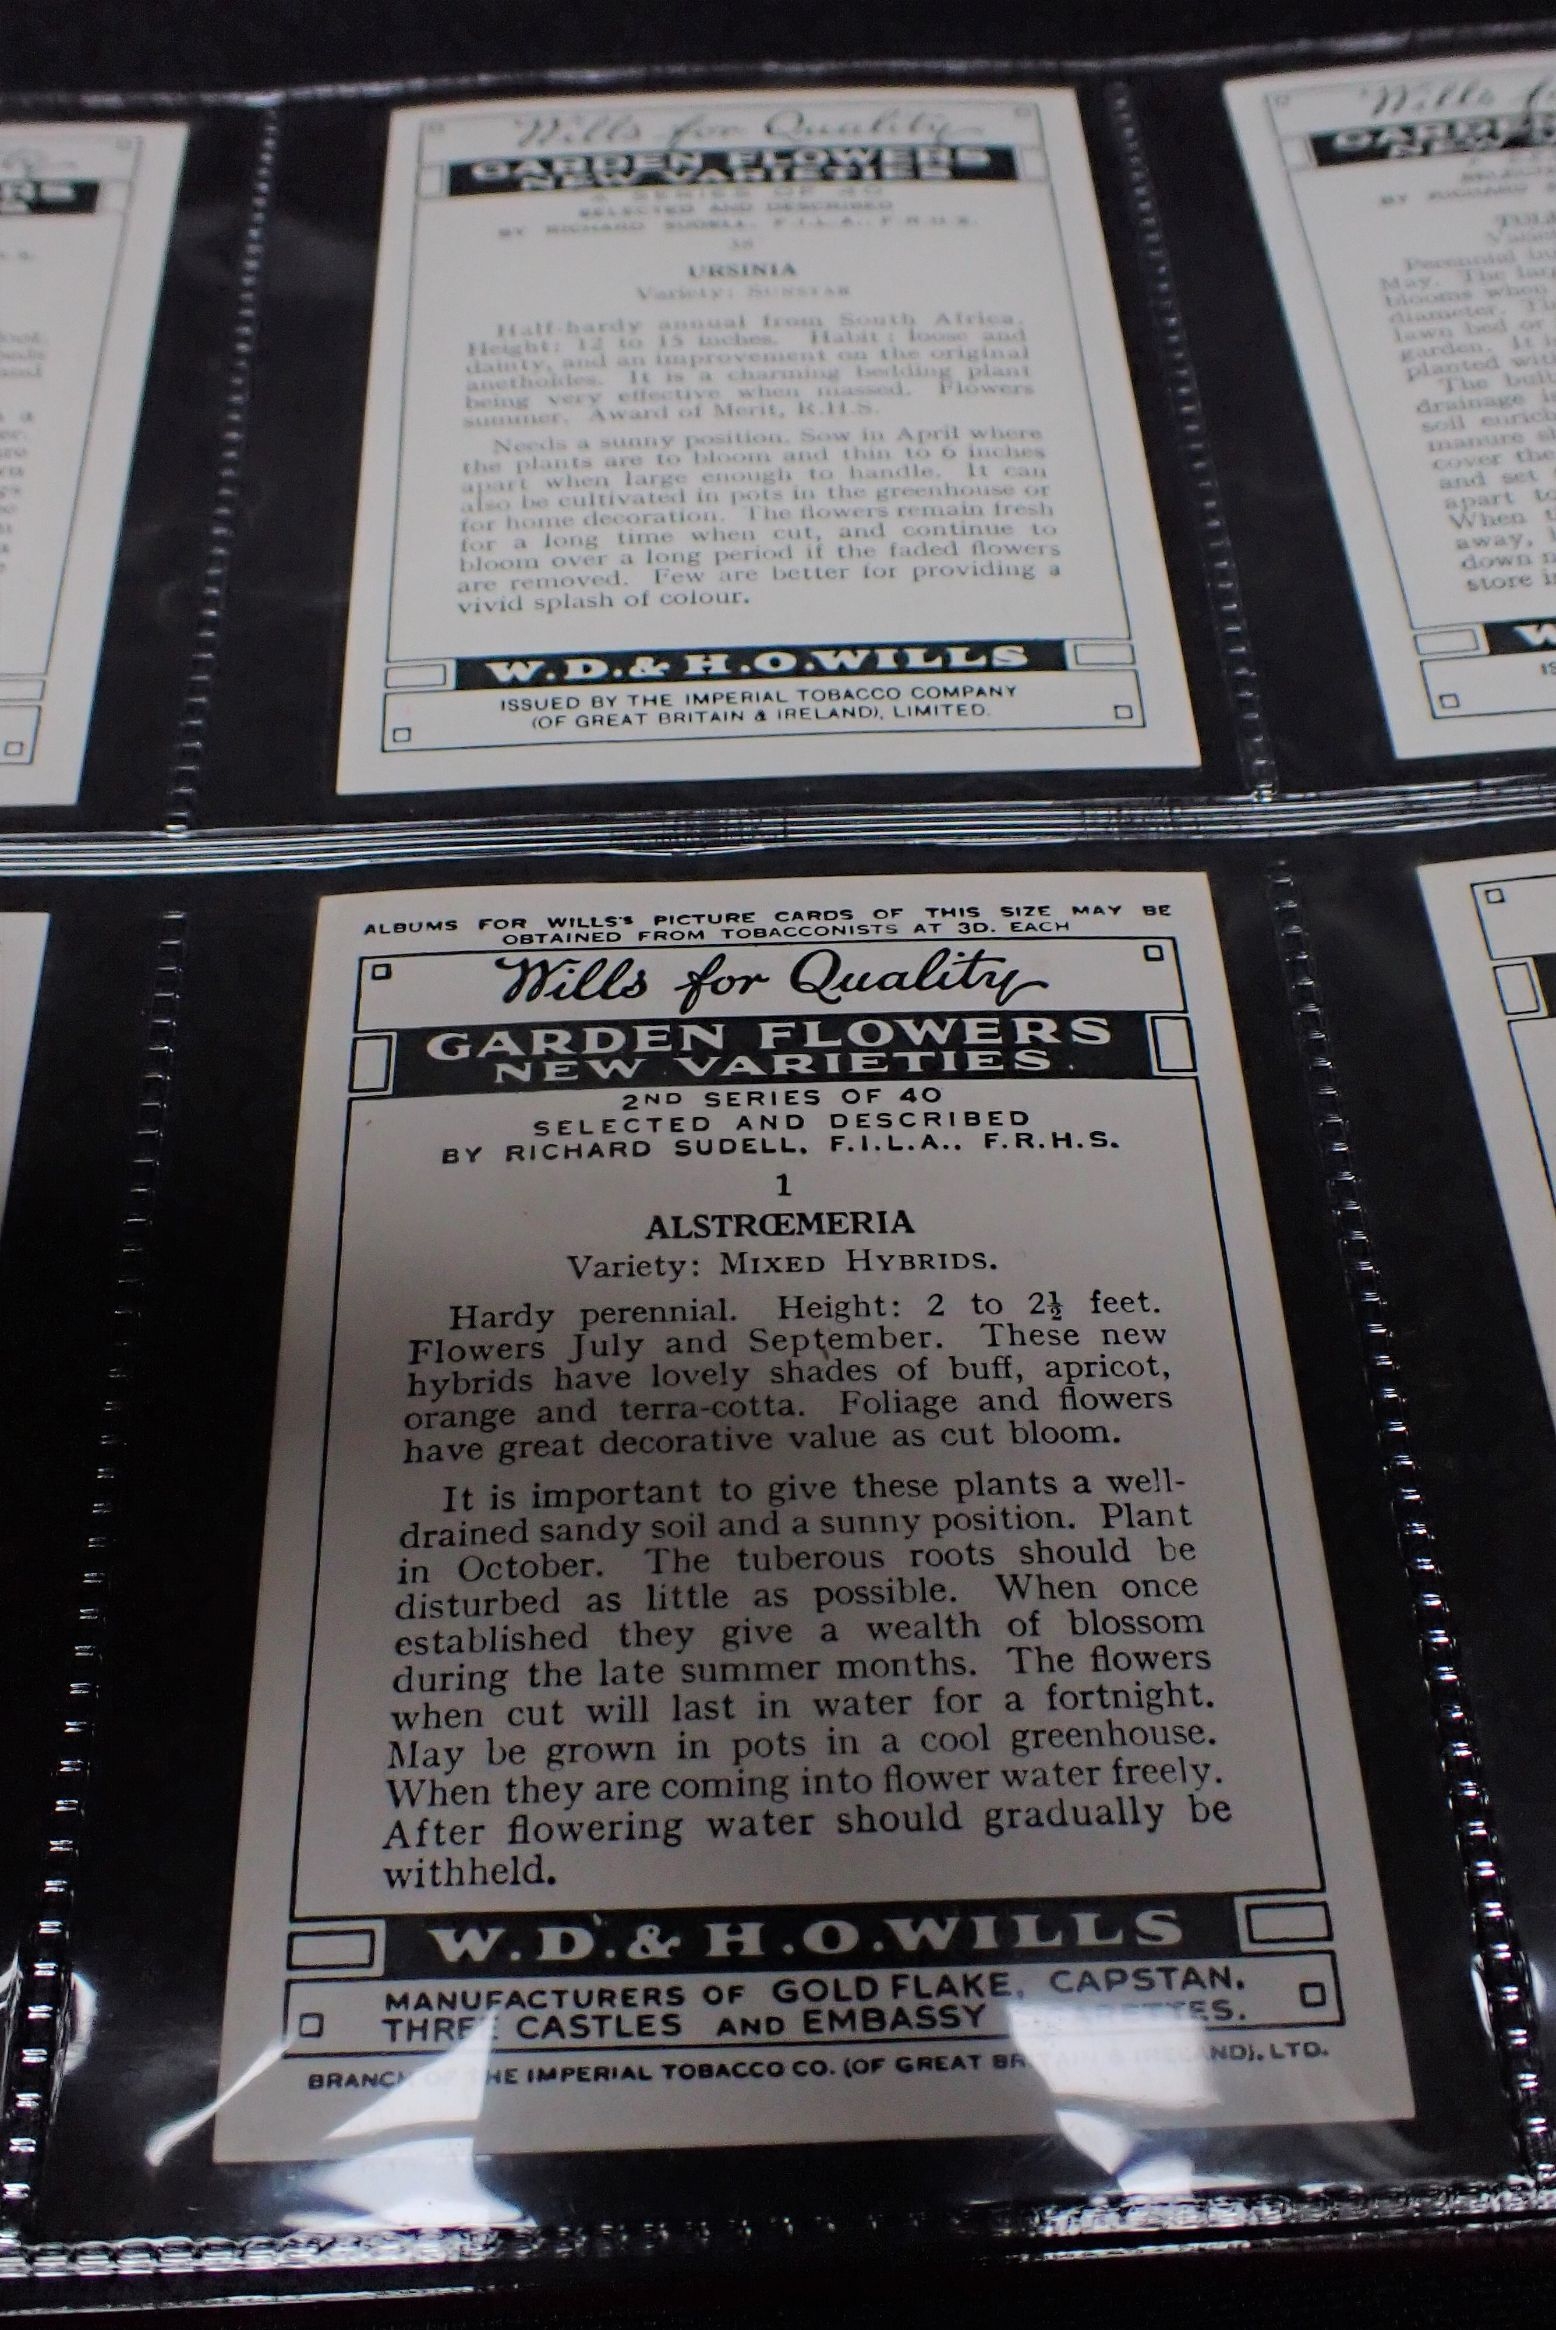 Wills for Quality
GARDEN FLOWERS
NEW VARIETIES
A SERIES OF 40
SELECTED AND DESCRIBED
BY RICHARD SUDELL, F.I.L.A., F.R.H.S.
URSINIA
Variety: SUNSTAR
Half-hardy annual from South Africa.
Height: 12 to 15 inches. Habit: loose and
dainty, and an improvement on the original
anethoides. It is a charming bedding plant
being very effective when massed. Flowers
summer. Award of Merit, R.H.S.
Needs a sunny position. Sow in April where
the plants are to bloom and thin to 6 inches
apart when large enough to handle. It can
also be cultivated in pots in the greenhouse or
for home decoration. The flowers remain fresh
for a long time when cut, and continue to
bloom over a long period if the faded flowers
are removed. Few are better for providing a
vivid splash of colour.
W.D. & H.O. WILLS
ISSUED BY THE IMPERIAL TOBACCO COMPANY
(OF GREAT BRITAIN & IRELAND), LIMITED.
Wills
Perennial
May. The
blooms when
diameter.
lawn bed or
garden. It
planted
The
drainage
soil
manure
cover the
and set
apart to
When
away,
down
store
W
ALBUMS FOR WILLS'S PICTURE CARDS OF THIS SIZE MAY BE
OBTAINED FROM TOBACCONISTS AT 3D. EACH
Wills for Quality
GARDEN FLOWERS
NEW VARIETIES.
2ND SERIES OF 40
SELECTED AND DESCRIBED
BY RICHARD SUDELL, F.I.L.A., F.R.H.S.
1
ALSTRŒMERIA
Variety: MIXED HYBRIDS.
Hardy perennial. Height: 2 to 2½ feet.
Flowers July and September. These new
hybrids have lovely shades of buff, apricot,
orange and terra-cotta. Foliage and flowers
have great decorative value as cut bloom.
It is important to give these plants a well-
drained sandy soil and a sunny position. Plant
in October. The tuberous roots should be
disturbed as little as possible. When once
established they give a wealth of blossom
during the late summer months. The flowers
when cut will last in water for a fortnight.
May be grown in pots in a cool greenhouse.
When they are coming into flower water freely.
After flowering water should gradually be
withheld.
W.D. & H.O. WILLS
MANUFACTURERS OF GOLD FLAKE, CAPSTAN,
THREE CASTLES AND EMBASSY CIGARETTES.
BRANCH OF THE IMPERIAL TOBACCO CO. (OF GREAT BRITAIN & IRELAND), LTD.